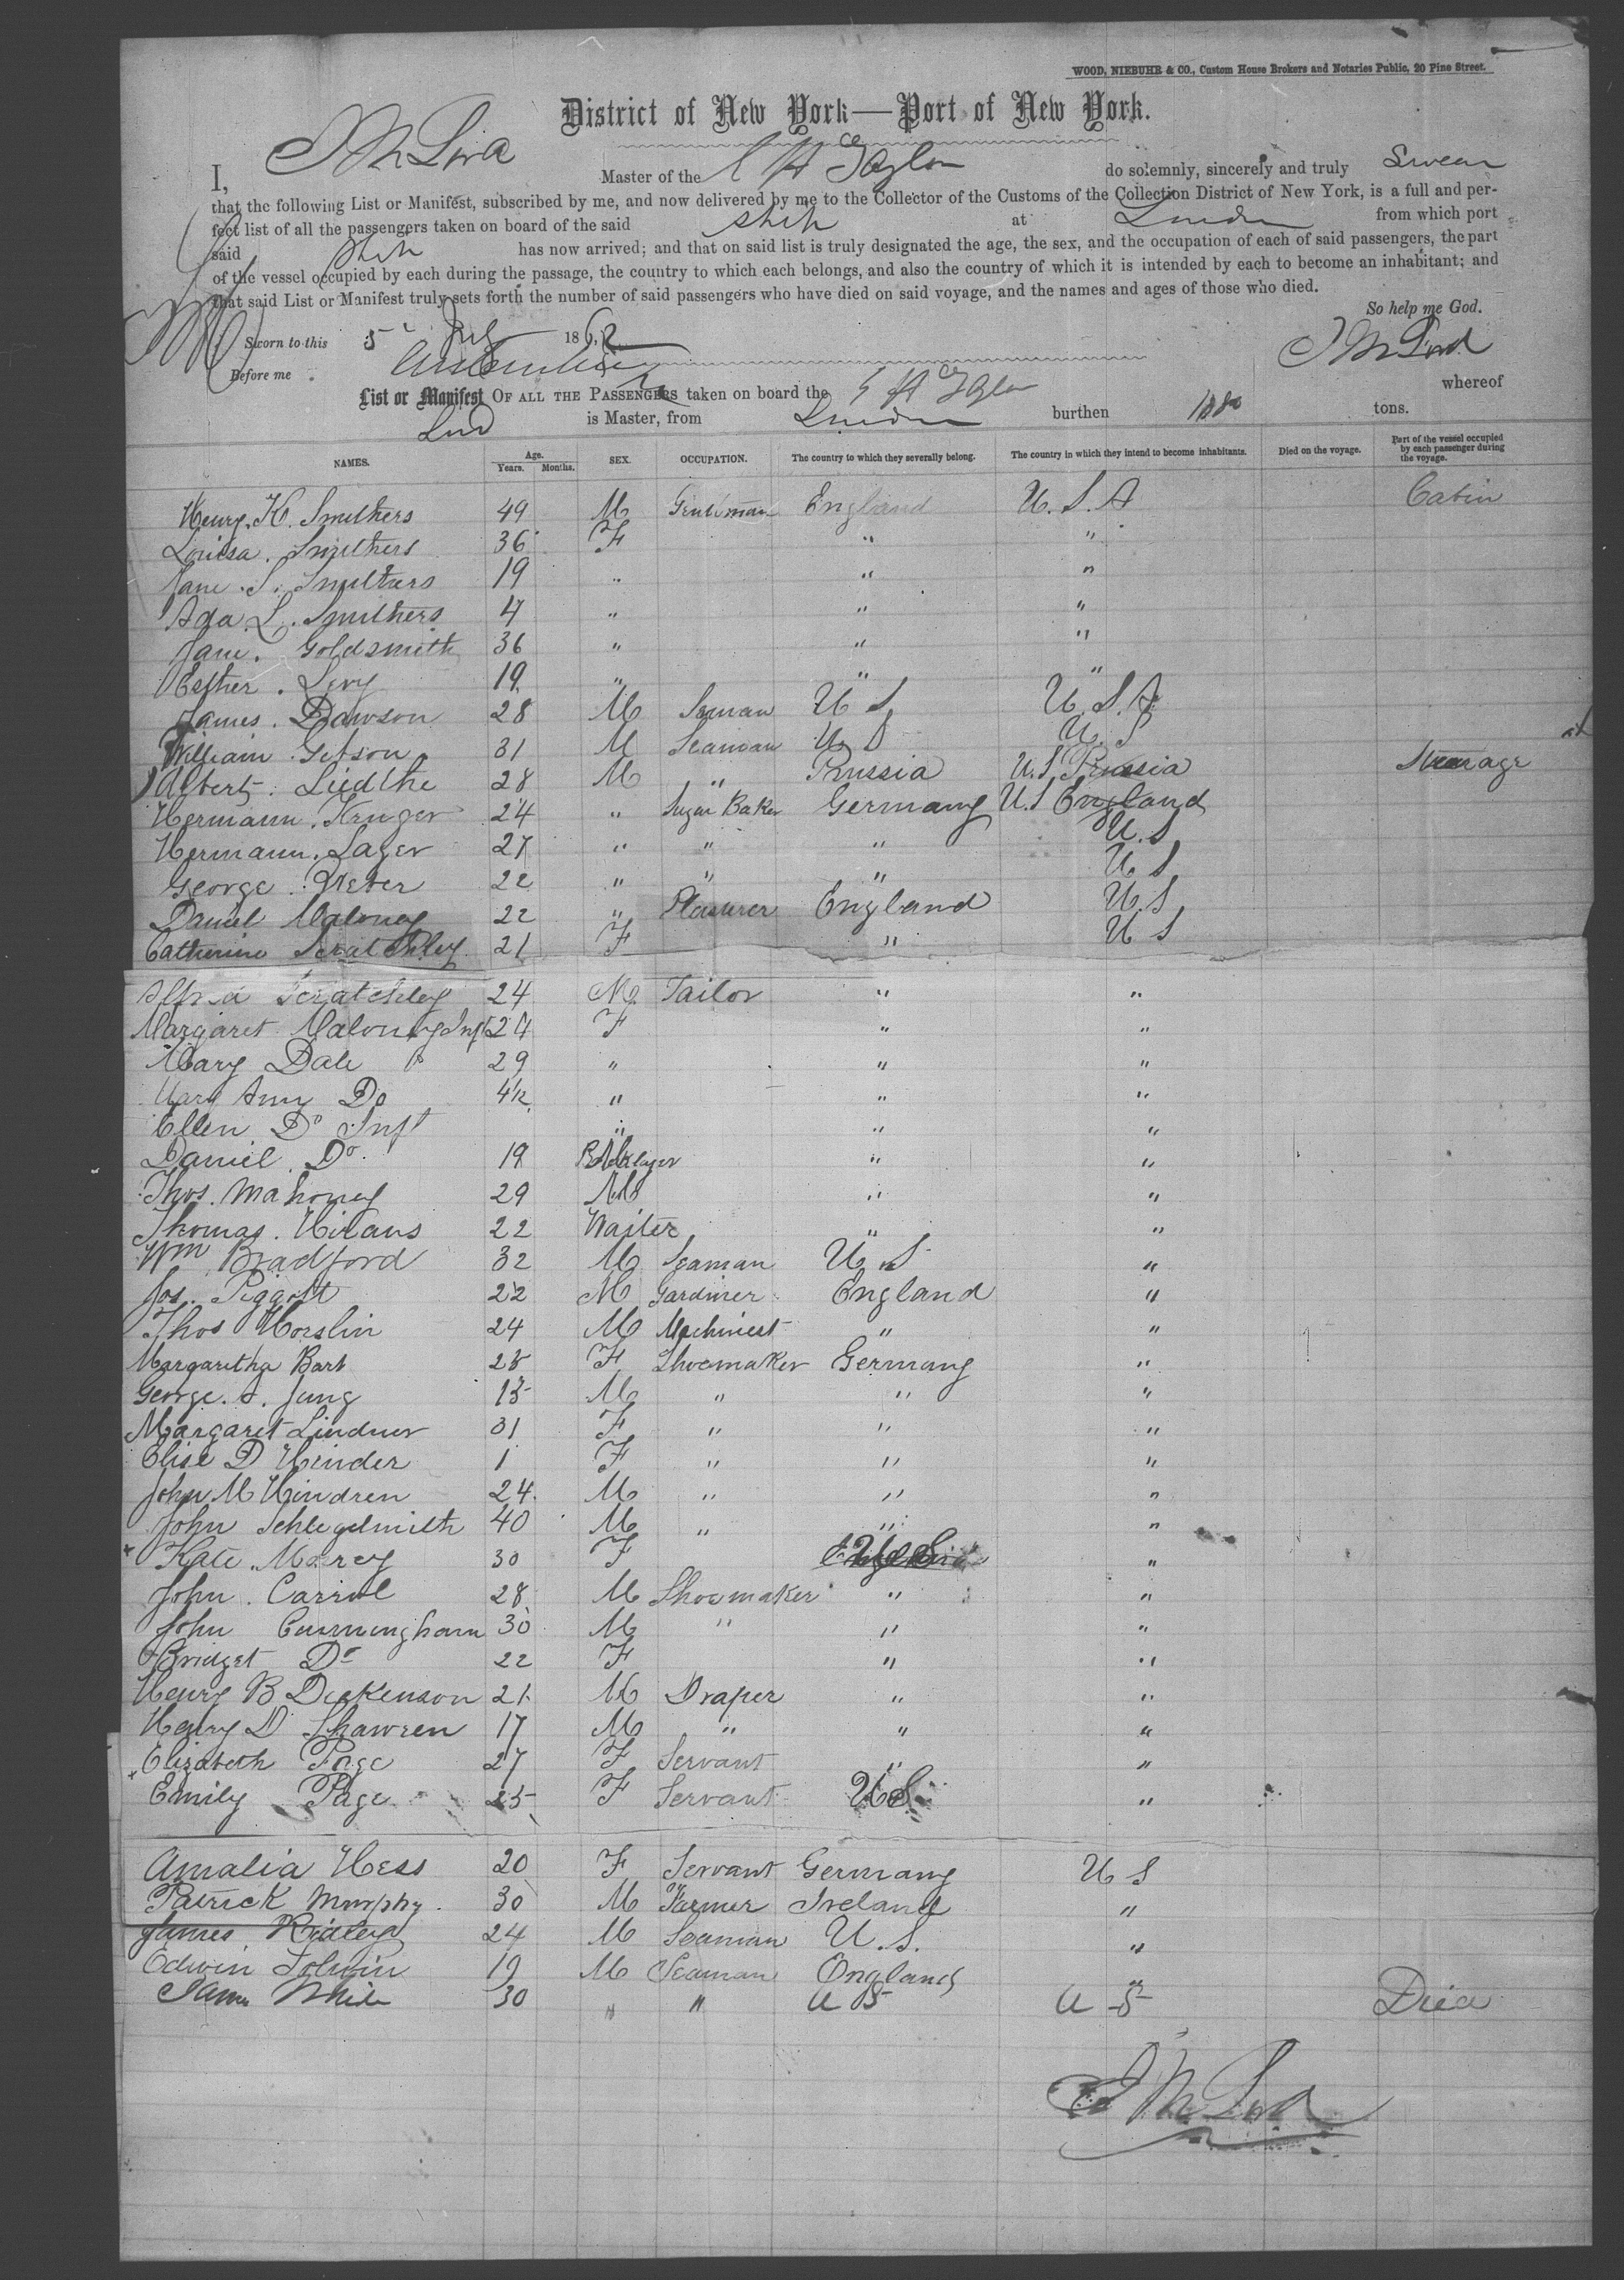 WOOD, NIEBUHR & CO., Custom House Brokers and Notaries Public, 20 Pine Street.
District of New York—Port of New York.
I, J M Lord Master of the C H Taylor do solemnly, sincerely and truly Swear
that the following List or Manifest, subscribed by me, and now delivered by me to the Collector of the Customs of the Collection District of New York, is a full and per-
fect list of all the passengers taken on board of the said Ship at London from which port
said Ship has now arrived; and that on said list is truly designated the age, the sex, and the occupation of each of said passengers, the part
of the vessel occupied by each during the passage, the country to which each belongs, and also the country of which it is intended by each to become an inhabitant; and
that said List or Manifest truly sets forth the number of said passengers who have died on said voyage, and the names and ages of those who died.
So help me God.
Sworn to this 5 186
J M Lord
Before me
List or Manifest OF ALL THE PASSENGERS taken on board the Taylor whereof
Lord is Master, from London burthen tons.
NAMES. Age. Years. Months. SEX. OCCUPATION. The country to which they severally belong. The country in which they intend to become inhabitants. Died on the voyage. Part of the vessel occupied by each passenger during the voyage.
Henry. K. Smithers 49 M Gentleman England U.S.A Cabin
Louisa. Smithers 36 F " "
Jane. S. Smithers 19 " " "
Ada. L. Smithers 4 " " "
Jane. Goldsmith 36 " " "
Esther. Levy 19 " " "
James. Dawson 28 M Seaman U S U.S.A
William Gibson 31 M Seaman U S U.S
Albert. Liedthe 28 M " Prussia U.S Prussia Steerage
Hermann. Kruger 24 " Sugar Baker Germany U.S England
Hermann. Lager 27 " " " U.S
George. Weber 22 " " " U S
Daniel Maloney 22 " Plasurer England U.S
Catherine Scratchley 21 F " U S
Alfred Scratchley 24 M Tailor " "
Margaret Maloney Inft 24 F " "
Mary Dale 29 " " "
Mary Amy Do 4½ " " "
Ellen Do Inft " " "
Daniel. Do 19 M Bricklayer " "
Thos. Mahoney 29 M " "
Thomas. 22 Waiter " "
Wm Bradford 32 M Seaman U S "
Jos. Piggott 22 M Gardiner England "
Thos Horslin 24 M Machinest " "
Margaretha Bart 28 F Shoemaker Germany "
George. A. Jung 13 M " " "
Margaret Lindner 31 F " " "
Elise D Hinder 1 F " " "
John M Hindren 24 M " " "
John Schlegelmilth 40 M " " "
Kate Marcy 30 F U S "
John. Carrol 28 M Shoemaker " "
John Cunningham 30 M " " "
Bridget Do 22 F " "
Henry B Dickenson 21 M Draper " "
Henry D Shawren 17 M " " "
Elizabeth Page 27 F Servant " "
Emily Page 25 F Servant U S "
Amalia Hess 20 F Servant Germany U S
Patrick Murphy 30 M Farmer Ireland "
James Ridley 24 M Seaman U.S. "
Edwin Tolwin 19 M Seaman England "
James White 30 " " U S U S Died
J M Lord